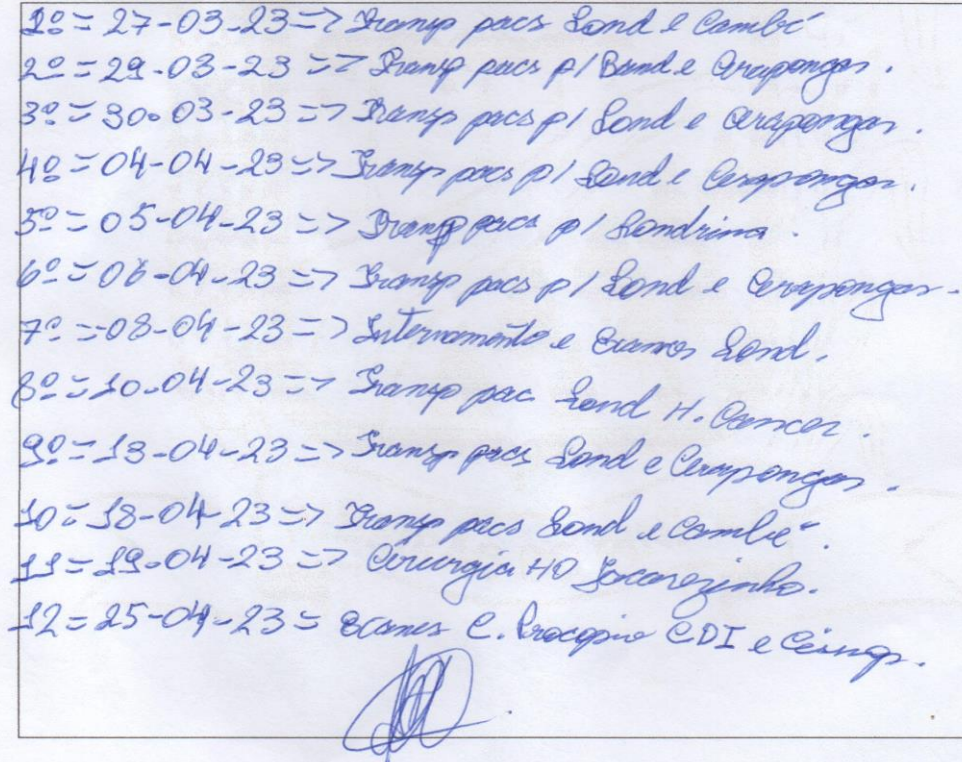 1º = 27-03-23 => Transp pacs Lond e Cambé
2º = 29-03-23 => Transp pacs p/ Band e Arapongas.
3º = 30-03-23 => Transp pacs p/ Lond e Arapongas.
4º = 04-04-23 => Transp pacs p/ Lond e Arapongas.
5º = 05-04-23 => Transp pacs p/ Londrina.
6º = 06-04-23 => Transp pacs p/ Lond e Arapongas.
7º = 08-04-23 => Internamento e Exames Lond.
8º = 10-04-23 => Transp pac Lond H. Cancer.
9º = 13-04-23 => Transp pacs Lond e Arapongas.
10 = 18-04-23 => Transp pacs Lond e Cambé.
11 = 19-04-23 => Cirurgia HO Jacarezinho.
12 = 25-04-23 = Exames C. Procopio CDI e